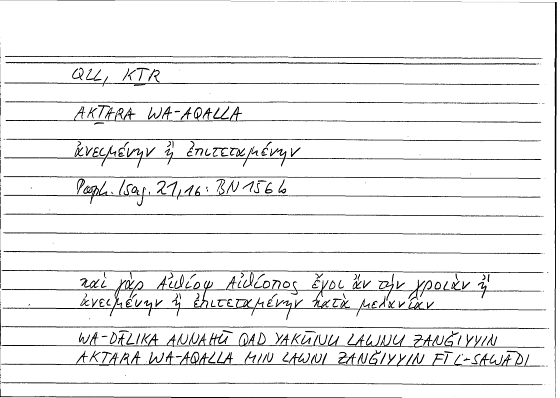 QLL, KṮR
AKṮARA WA-AQALLA
ἀνειμένην ἢ ἐπιτεταμένην
Porph. Isag. 21,16: BN 156b
καὶ γὰρ Αἰθίοψ Αἰθίοπος ἔχοι ἂν τὴν χροιὰν ἢ
ἀνειμένην ἢ ἐπιτεταμένην κατὰ μελανίαν
WA-ḎĀLIKA ANNAHŪ QAD YAKŪNU LAWNU ZANǦIYYIN
AKṮARA WA-AQALLA MIN LAWNI ZANǦIYYIN FĪ L-SAWĀDI